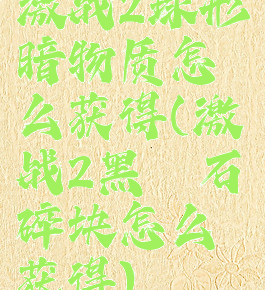 激战2球形
暗物质怎
么获得(激
战2黑 石
碎块怎么
获得)